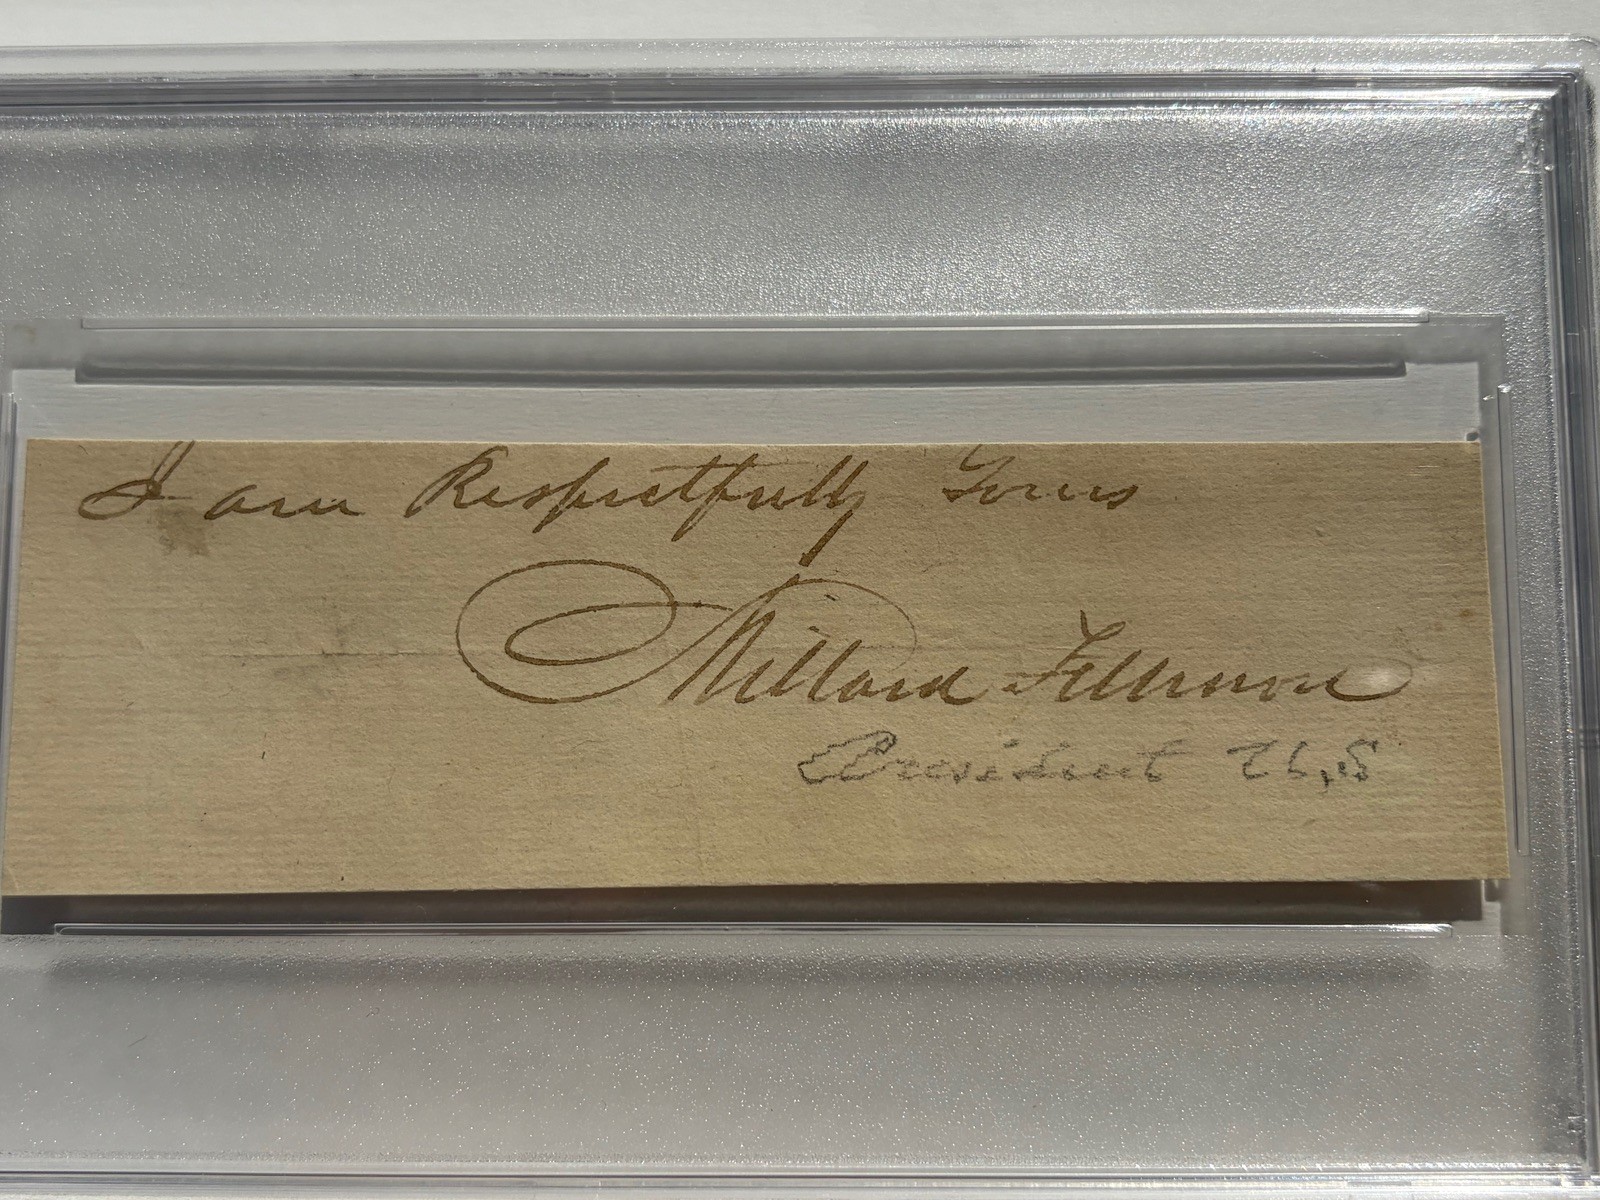 I am Respectfully Yours
Millard Fillmore
President U.S